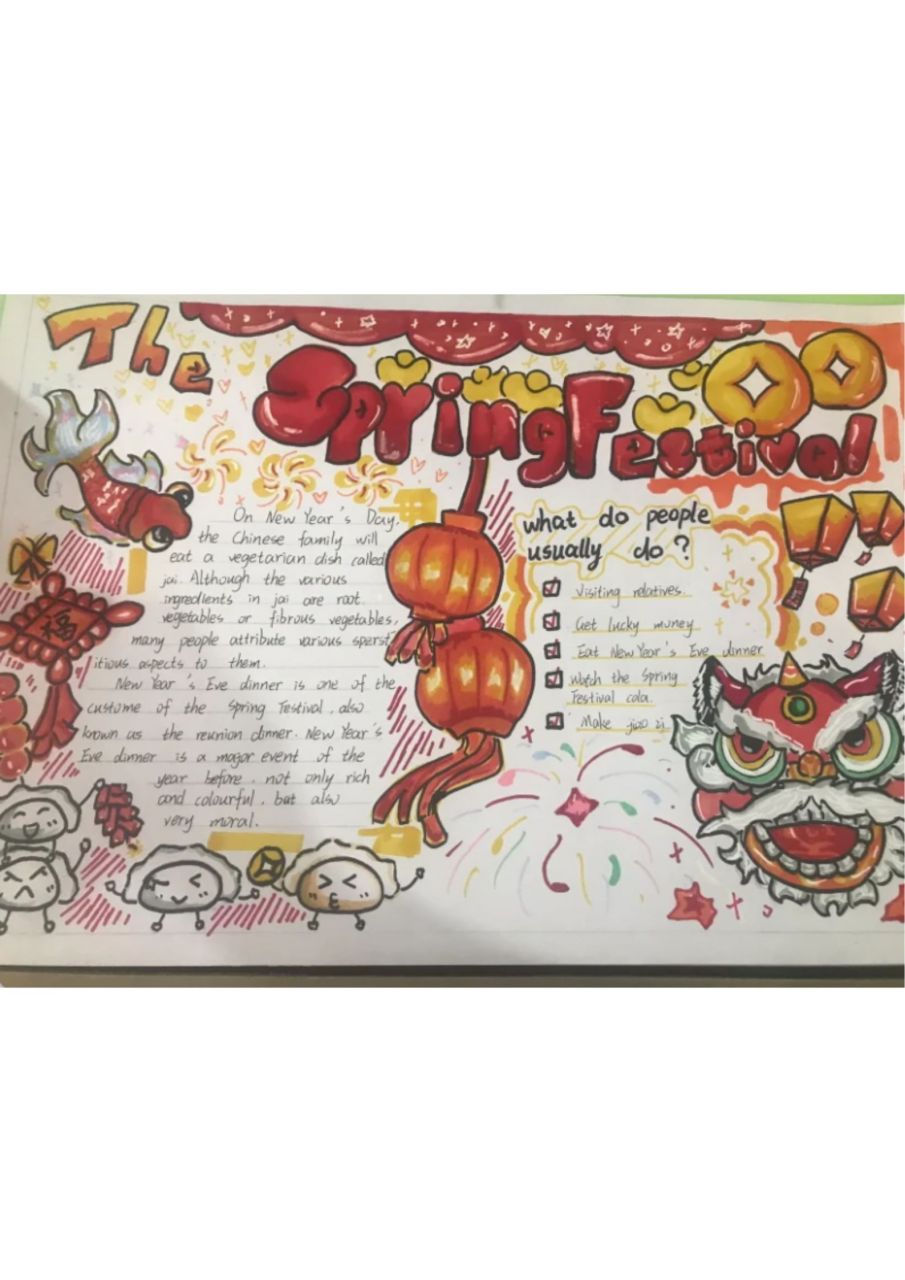 The
Spring Festival
On New Year's Day,
the Chinese family will
eat a vegetarian dish called
jai. Although the various
ingredients in jai are root
vegetables or fibrous vegetables,
many people attribute various sperst
itious aspects to them.
New Year's Eve dinner is one of the
custome of the Spring Festival, also
known as the reunion dinner. New Year's
Eve dinner is a major event of the
year before, not only rich
and colourful, but also
very moral.
what do people
usually do?
Visiting relatives.
Get lucky money
Eat New Year's Eve dinner
Watch the Spring
Festival cala.
Make jiao zi
福